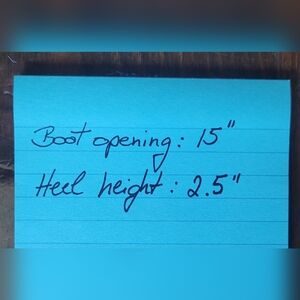 Boot opening: 15"
Heel height: 2.5"